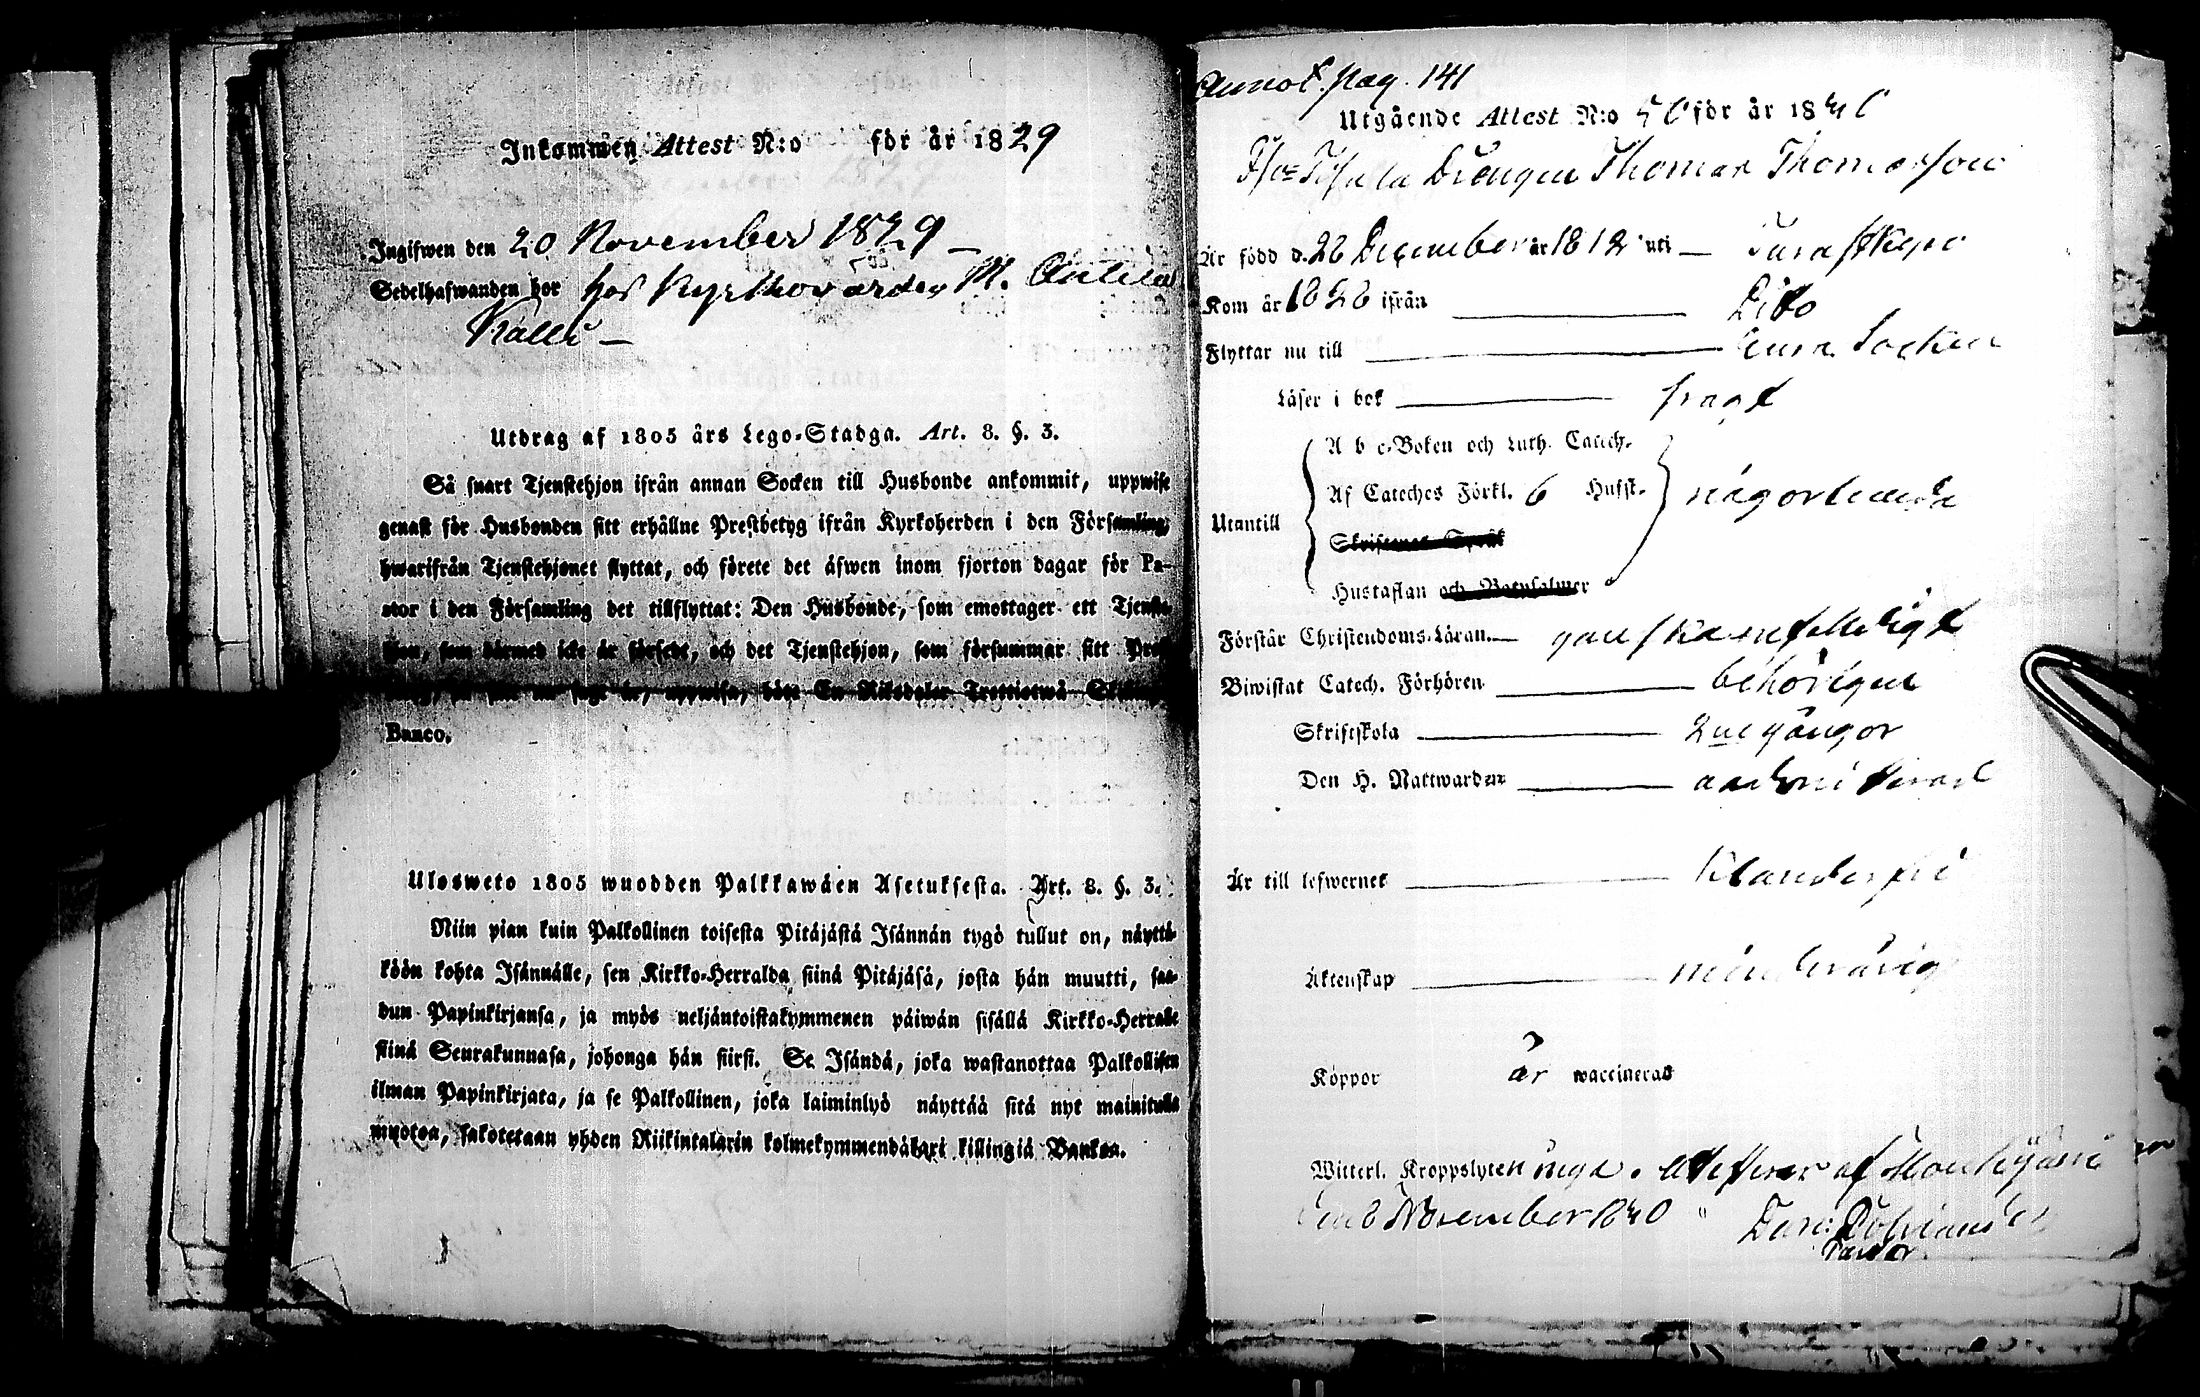 Inkommen Attest N:o för år 1829
Ingifwen den 20 November 1829 –
Sedelhafwanden bor hos Kyrkovärden M.
Källi –
Utdrag af 1805 års Lego-Stadga. Art. 8. §. 3.
Så snart Tjenstehjon ifrån annan Socken till Husbonde ankommit, uppwise
genast för Husbonden sitt erhållne Prestbetyg ifrån Kyrkoherden i den Församling,
hwarifrån Tjenstehjonet flyttat, och förete det äfwen inom fjorton dagar för Pa-
stor i den Församling det tillflyttat: Den Husbonde, som emottager ett Tjenste-
hjon, som därmed icke är försedt, och det Tjenstehjon, som försummar sitt
uppwisa, böte En Riksdaler Trettietwå
Banco.
Ulosweto 1805 wuodden Palkkawäen Asetuksesta. Art. 8. §. 3.
Niin pian kuin Palkollinen toisesta Pitäjästä Isännän tygö tullut on, näyttä-
köön kohta Isännälle, sen Kirkko-Herralda siinä Pitäjäsä, josta hän muutti, saa-
dun Papinkirjansa, ja myös neljäntoistakymmenen päiwän sisällä Kirkko-Herralle
siinä Seurakunnasa, johonga hän siirsi. Se Isändä, joka wastanottaa Palkollisen
ilman Papinkirjata, ja se Palkollinen, joka laiminlyö näyttää sitä nyt mainitulla
muotoa, sakotetaan yhden Riikintalarin kolmekymmendäkaxi killingiä Bankoa.
Annot. pag. 141
Utgående Attest N:o för år 18
Drengen Thomas Thomasson
Är född d. December år 1812 uti –
Kom år ifrån Dito
Flyttar nu till Eura Socken
Läser i bok svagt
A b c-Boken och Luth. Catech.
Af Cateches Förkl. 6 Husst.
Utantill någorlunda
Skriftenes Språk
Hustaflan och Botpsalmer
Förstår Christendoms-Läran – ganska enfelleligt
Biwistat Catech. Förhören behörigen
Skriftskola 2ne gånger
Den H. Nattwarden admitterad
Är till lefwernet klanderfri
Äktenskap minderårig
Koppor är waccinerad
Witterl. Kroppslyten inga. Attesterar af Honkijoki
den 8 November 1840
Pastor